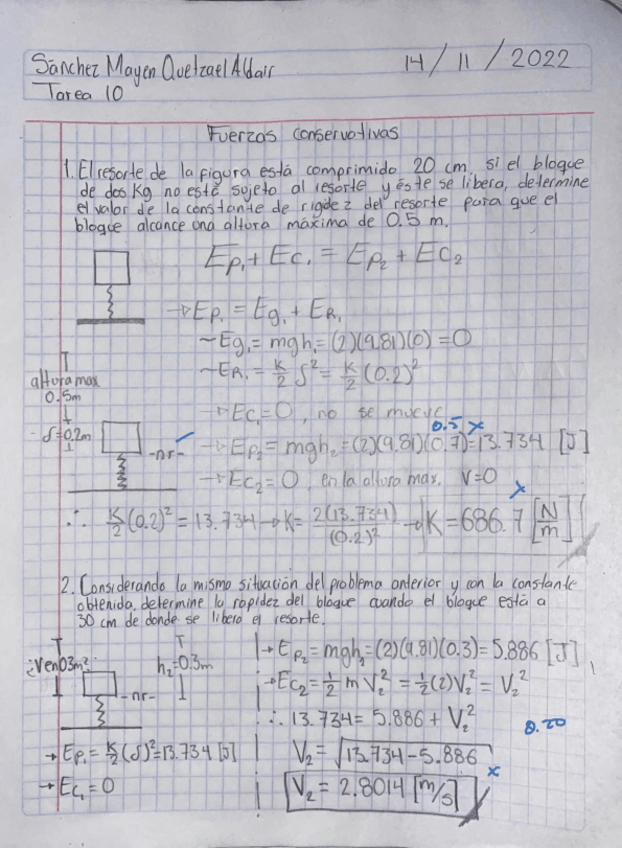 Sánchez Mayen Quetzael Aldair 14/11/2022
Tarea 10
Fuerzas conservativas
1. El resorte de la figura está comprimido 20 cm, si el bloque
de dos Kg no está sujeto al resorte y éste se libera, determine
el valor de la constante de rigdez del resorte para que el
bloque alcance una altura máxima de 0.5 m.
Ep₁ + Ec₁ = Ep₂ + Ec₂
→ Ep₁ = Eg₁ + ER₁
~Eg₁ = mgh₁ = (2)(9.81)(0) = 0
~ER₁ = K/2 δ² = K/2 (0.2)²
altura max
0.5m
→ Ec₁ = 0, no se mueve
0.5 x
δ = 0.2m
-nr-
→ Ep₂ = mgh₂ = (2)(9.81)(0.7) = 13.734 [J]
→ Ec₂ = 0, en la altura max. V=0
x
∴ K/2 (0.2)² = 13.734 → K = 2(13.734)/(0.2)² → K = 686.7 [N/m]
2. Considerando la misma situación del problema anterior y con la constante
obtenida, determine la rapidez del bloque cuando el bloque está a
30 cm de donde se libero el resorte.
¿V en 0.3m?
-nr-
h₂ = 0.3m
→ Ep₁ = K/2 (δ)² = 13.734 [J]
→ Ec₁ = 0
→ Ep₂ = mgh₂ = (2)(9.81)(0.3) = 5.886 [J]
→ Ec₂ = 1/2 m V₂² = 1/2 (2) V₂² = V₂²
∴ 13.734 = 5.886 + V₂²
0.20
V₂ = √13.734 - 5.886
x
V₂ = 2.8014 [m/s]